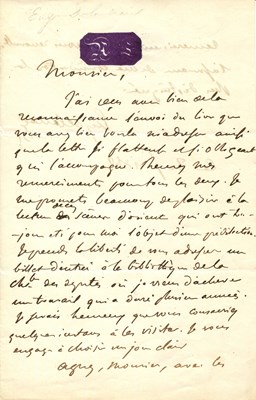 Monsieur,
J'ai reçu avec bien de la
reconnaissance l'envoi du livre que
vous avez bien voulu m'adresser ainsi
que la lettre si flatteuse et si obligeante
qui l'accompagne. Recevez mes
remerciements pour tous les deux. Je
me promets beaucoup de plaisir à la
lecture des d'orient qui ont tou-
jours été pour moi l'objet d'une prédilection.
Je prends la liberté de vous adresser un
billet d'entrée à la bibliothèque de la
chbre des députés où je viens d'achever
un travail qui a duré plusieurs années.
Je serais heureux que vous consacriez
quelques instants à les visiter. Je vous
engage à choisir un jour clair
agréez, Monsieur, avec les